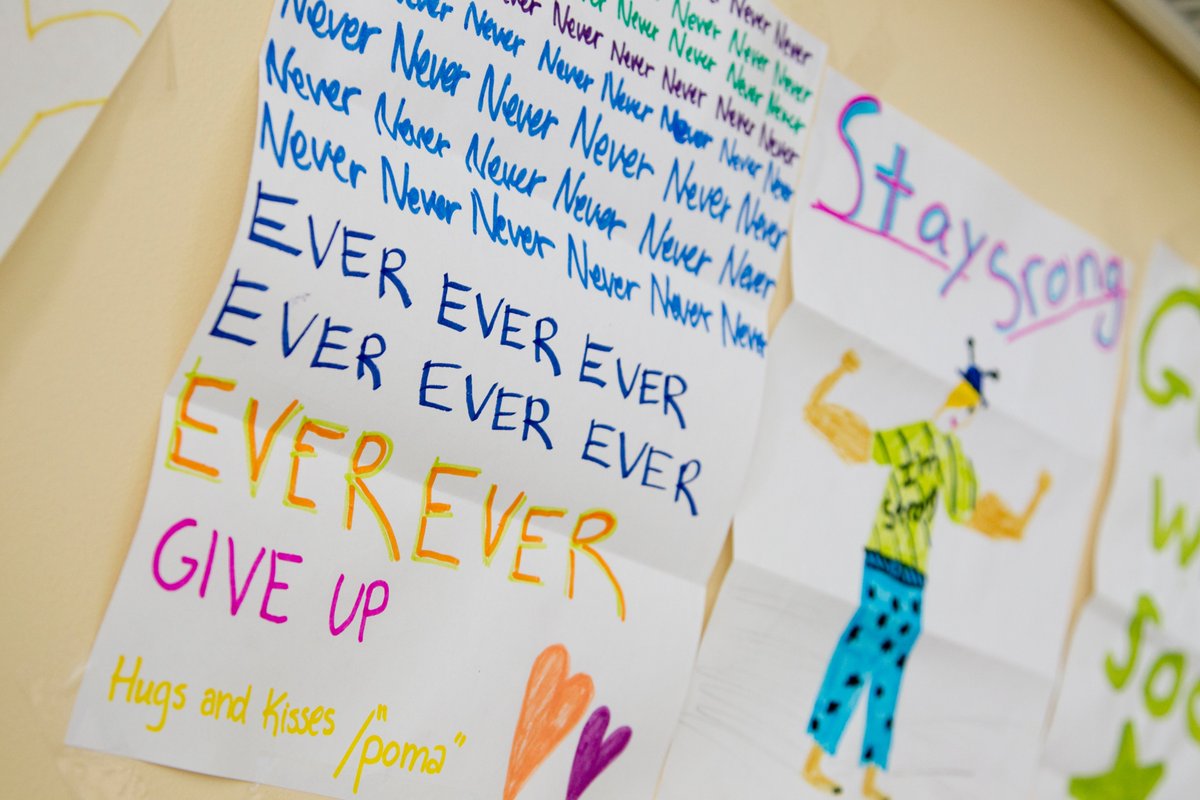 Never Never
Never Never Never
Never Never Never Never
Never Never Never Never Never
Never Never Never Never Never Never
Never Never Never Never Never Never
Never Never Never Never Never Never
Never Never Never Never Never Never
EVER EVER EVER
EVER EVER EVER
EVER EVER
GIVE UP
Hugs and Kisses /"poma"
Stay Srong
I'm
strong
G
w
soo